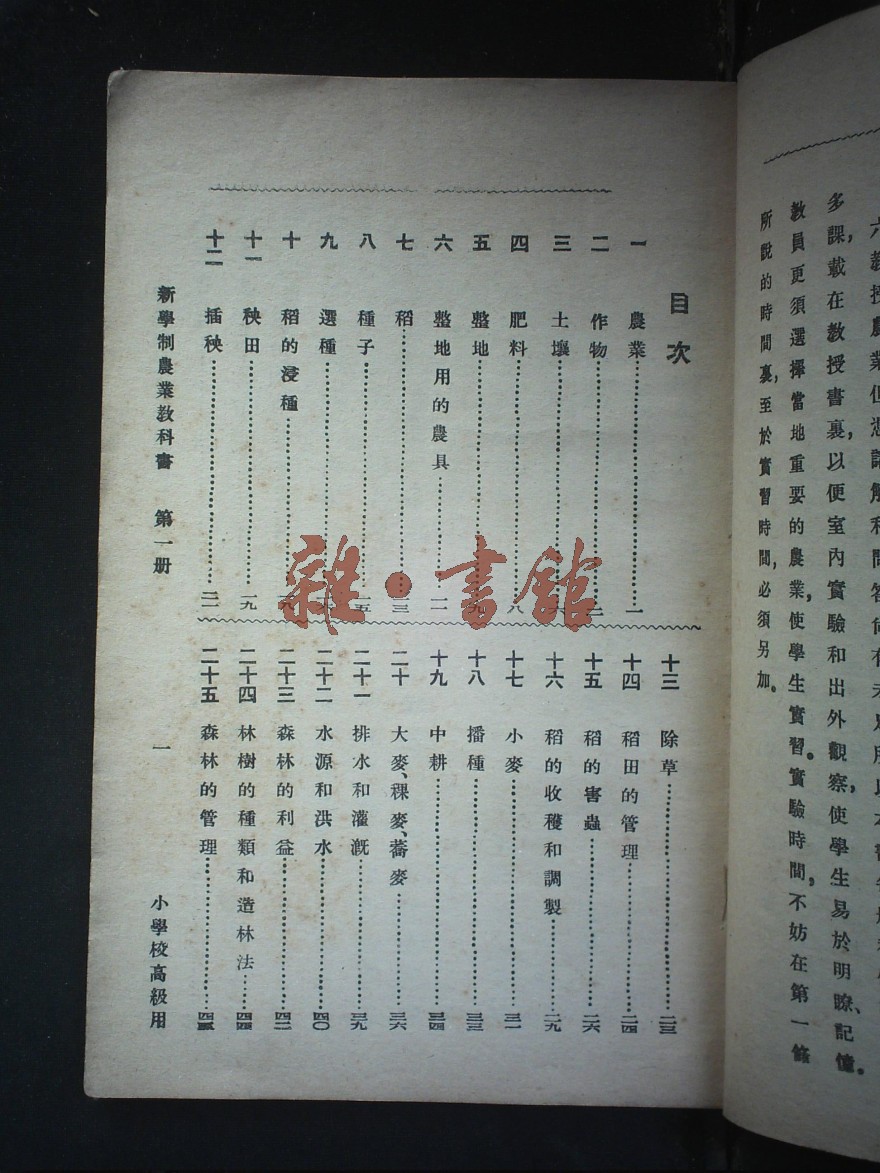 六教授農業但憑講解和問答尚有未足所以本書
多課,載在教授書裏,以便室內實驗和出外觀察,使學生易於明瞭、記憶。
教員更須選擇當地重要的農業,使學生實習。實驗時間,不妨在第一條
所說的時間裏,至於實習時間,必須另加。
目次
一 農業 一
二 作物
三 土壤 六
四 肥料 八
五 整地 九
六 整地用的農具 一一
七 稻
八 種子 一五
九 選種
十 稻的浸種
十一 秧田 一九
十二 插秧 二一
十三 除草 二三
十四 稻田的管理 二四
十五 稻的害蟲 二六
十六 稻的收穫和調製 二九
十七 小麥 三一
十八 播種 三三
十九 中耕 三四
二十 大麥、稞麥、蕎麥 三六
二十一 排水和灌漑 三九
二十二 水源和洪水 四〇
二十三 森林的利益 四二
二十四 林樹的種類和造林法 四四
二十五 森林的管理
新學制農業教科書 第一册 一 小學校高級用
雜·書館